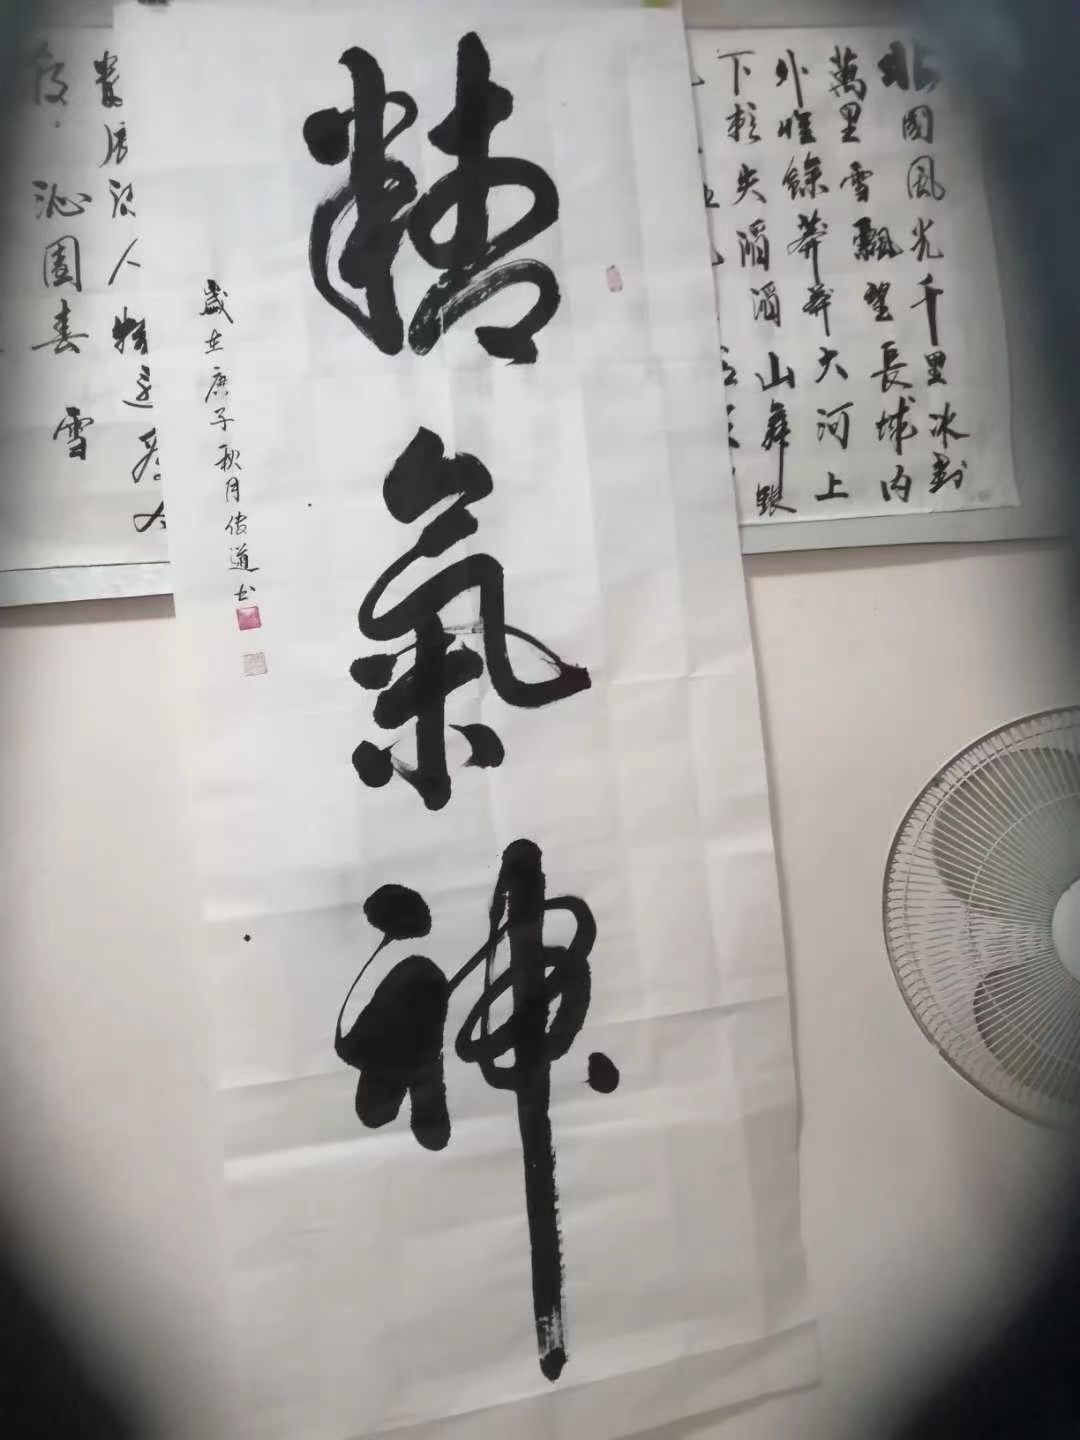 精氣神
歲在庚子秋月道书
北國風光千里冰封
萬里雪飄望長城内
外惟餘莽莽大河上
下頓失滔滔山舞銀
人物还看今
沁園春 雪